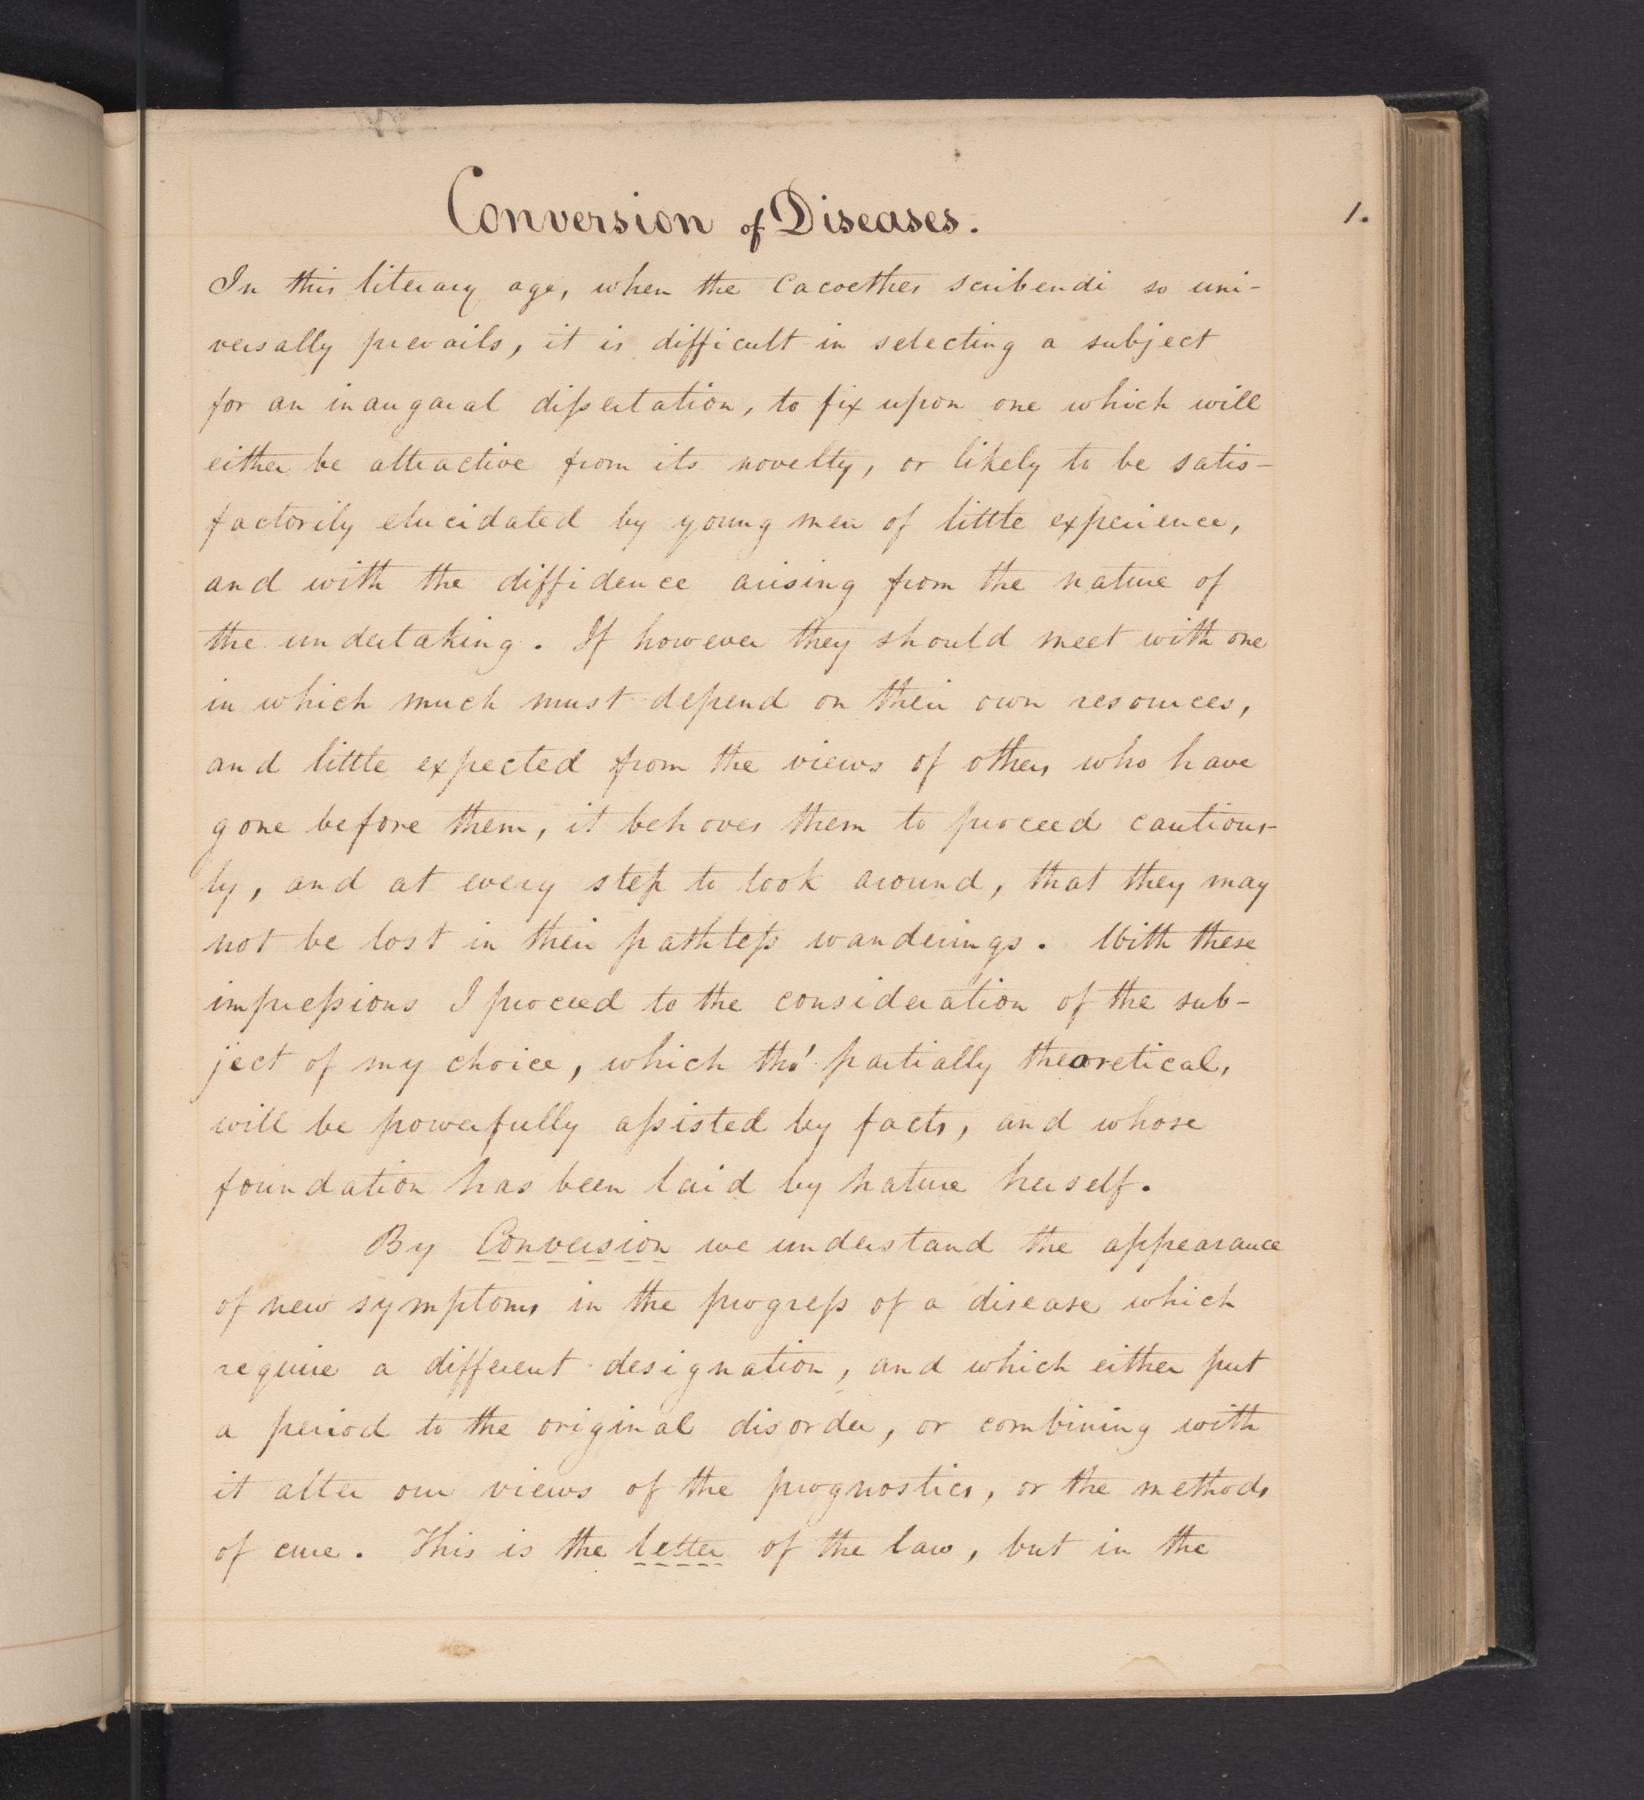 Conversion of Diseases.
1.
In this literary age, when the Cacoethes scribendi so uni-
versally prevails, it is difficult in selecting a subject
for an inaugaral dissertation, to fix upon one which will
either be attractive from its novelty, or likely to be satis-
factorily elucidated by young men of little experience,
and with the diffidence arising from the nature of
the undertaking. If however they should meet with one
in which much must depend on their own resources,
and little expected from the views of others who have
gone before them, it behoves them to proceed cautious-
ly, and at every step to look around, that they may
not be lost in their pathless wanderings. With these
impressions I proceed to the consideration of the sub-
ject of my choice, which tho' partially theoretical,
will be powerfully assisted by facts, and whose
foundation has been laid by nature herself.
By Conversion we understand the appearance
of new symptoms in the progress of a disease which
require a different designation, and which either put
a period to the original disorder, or combining with
it alter our views of the prognostics, or the methods
of cure. This is the letter of the law, but in the